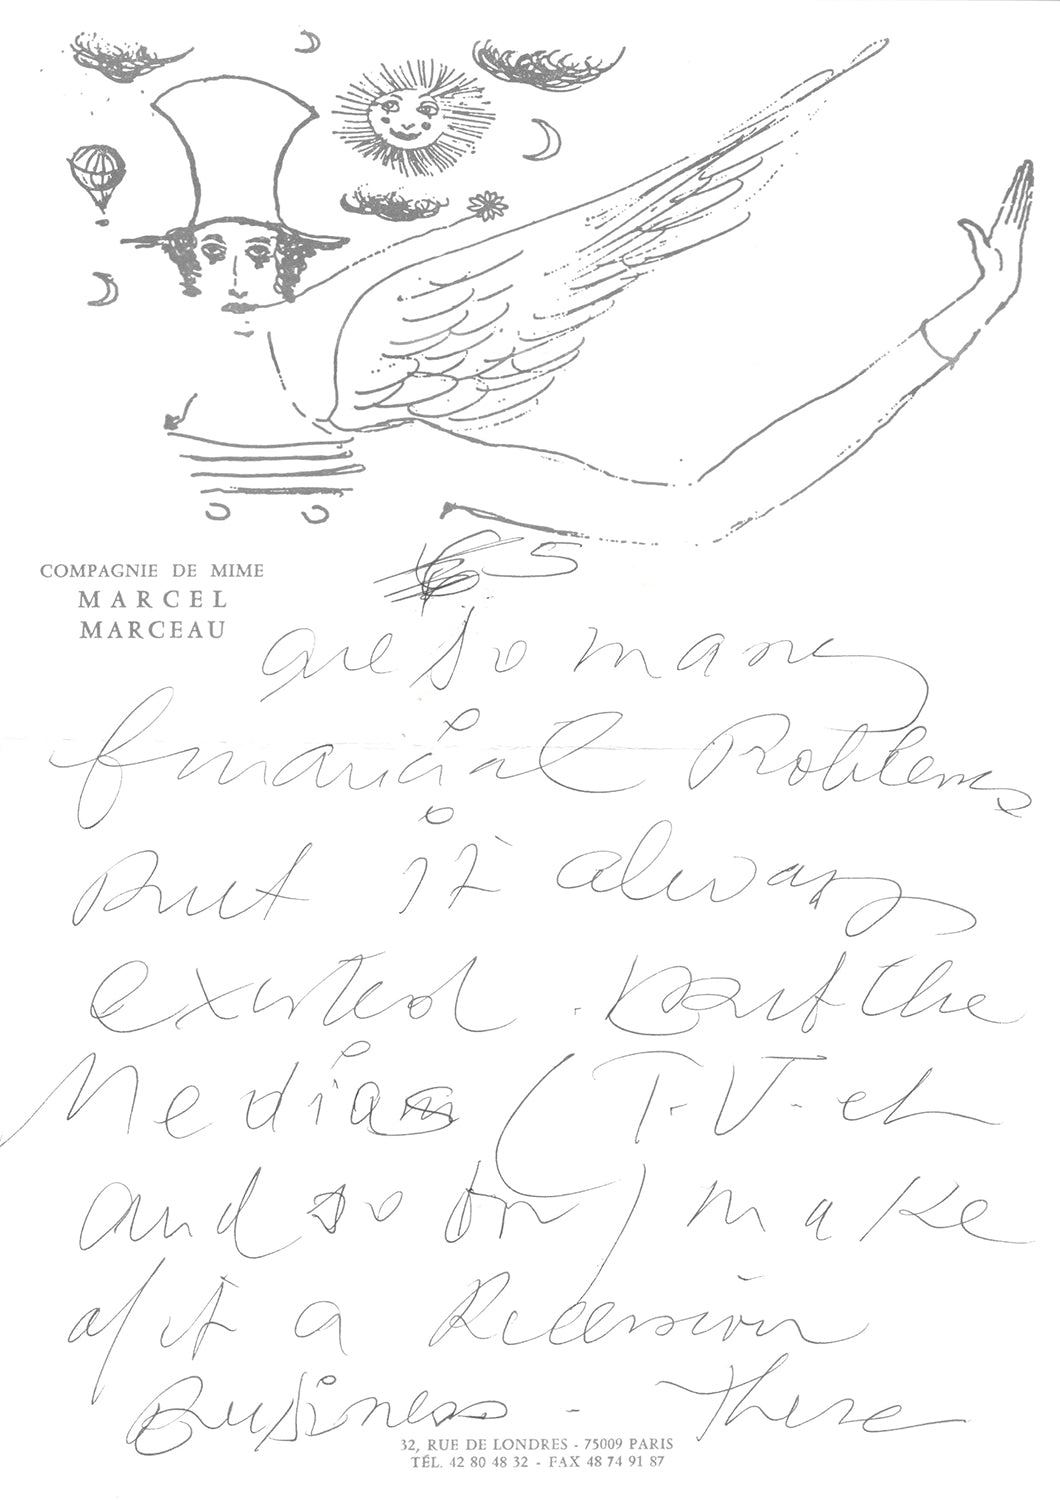 COMPAGNIE DE MIME
MARCEL
MARCEAU
5
are so many
financial Problems
But it always
existed. But the
Medias (T.V. et
and so on) make
of it a Recession
Business - There
32, RUE DE LONDRES - 75009 PARIS
TÉL. 42 80 48 32 - FAX 48 74 91 87